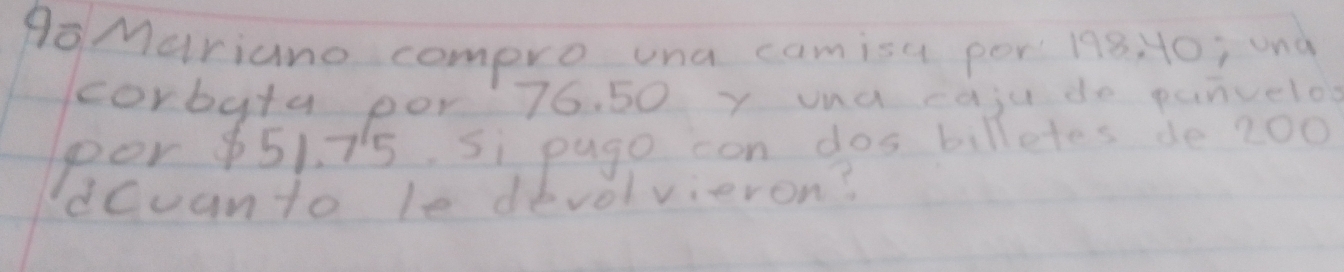 9º Mariano compro una camisa por 198.40; una
corbata por 76.50 y una caja de pañuelos
por $51.75. Si pago con dos billetes de 200
¿Cuanto le devolvieron?